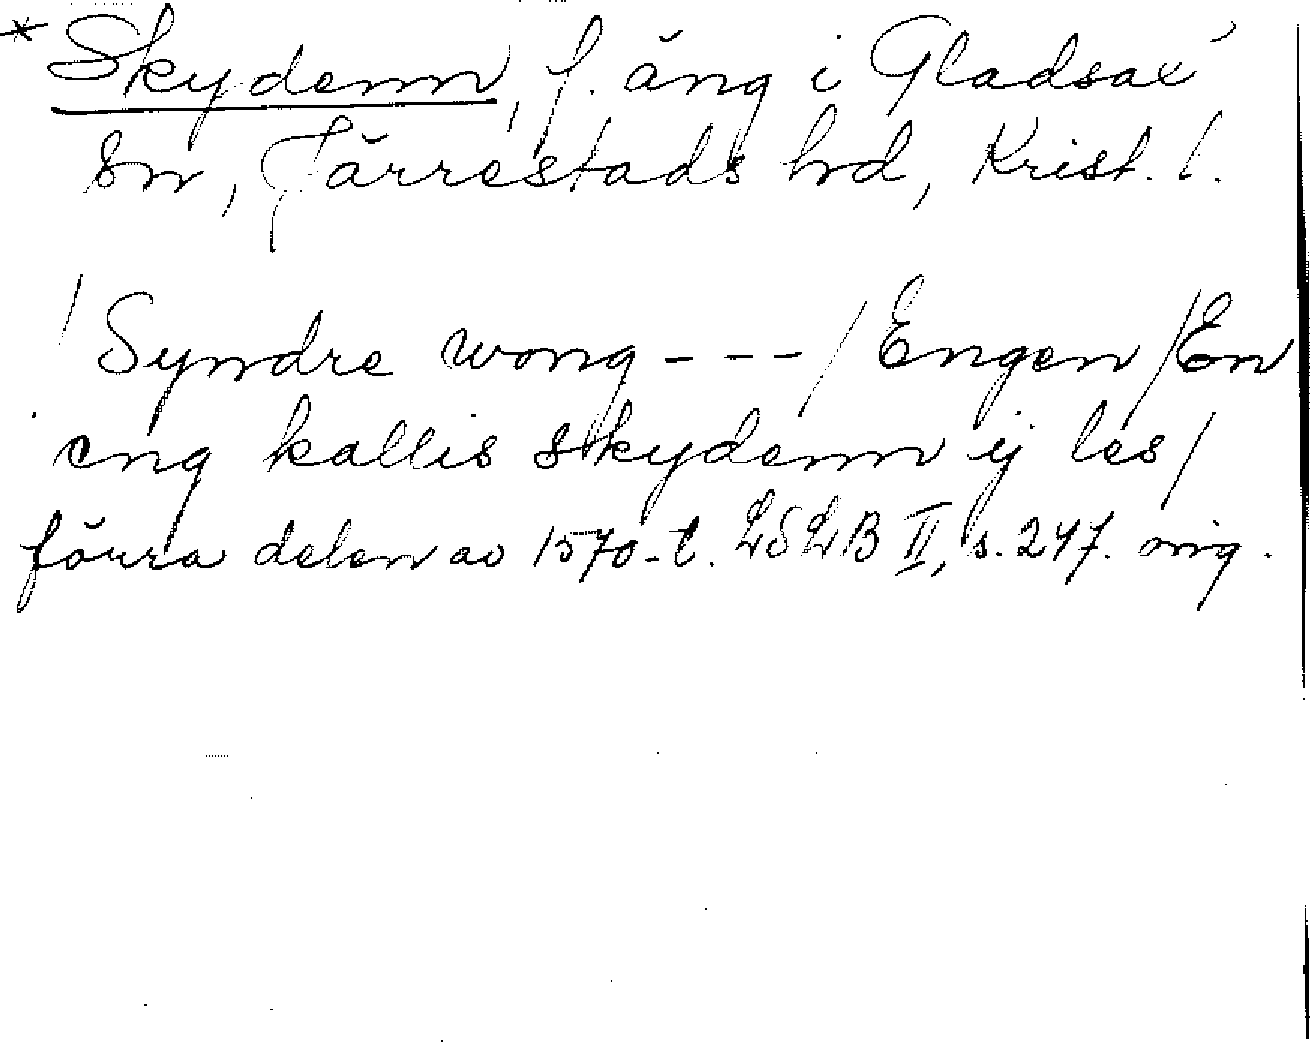 *Skydenn, f. äng i Gladsax
sn, Järrestads hd, Krist. l.
/Syndre wong - - - / Engen / En
eng kallis skydenn ij les /
förra delen av 1570-t. LSLB II, s. 247. orig.